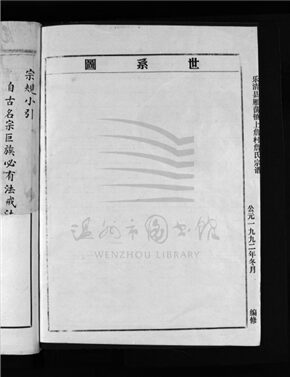 世系圖
乐清县雁荡镇上詹村詹氏宗谱
公元一九九二年冬月
编修
宗規小引
自古名宗巨族必有法戒
温州市图书馆
WENZHOU LIBRARY